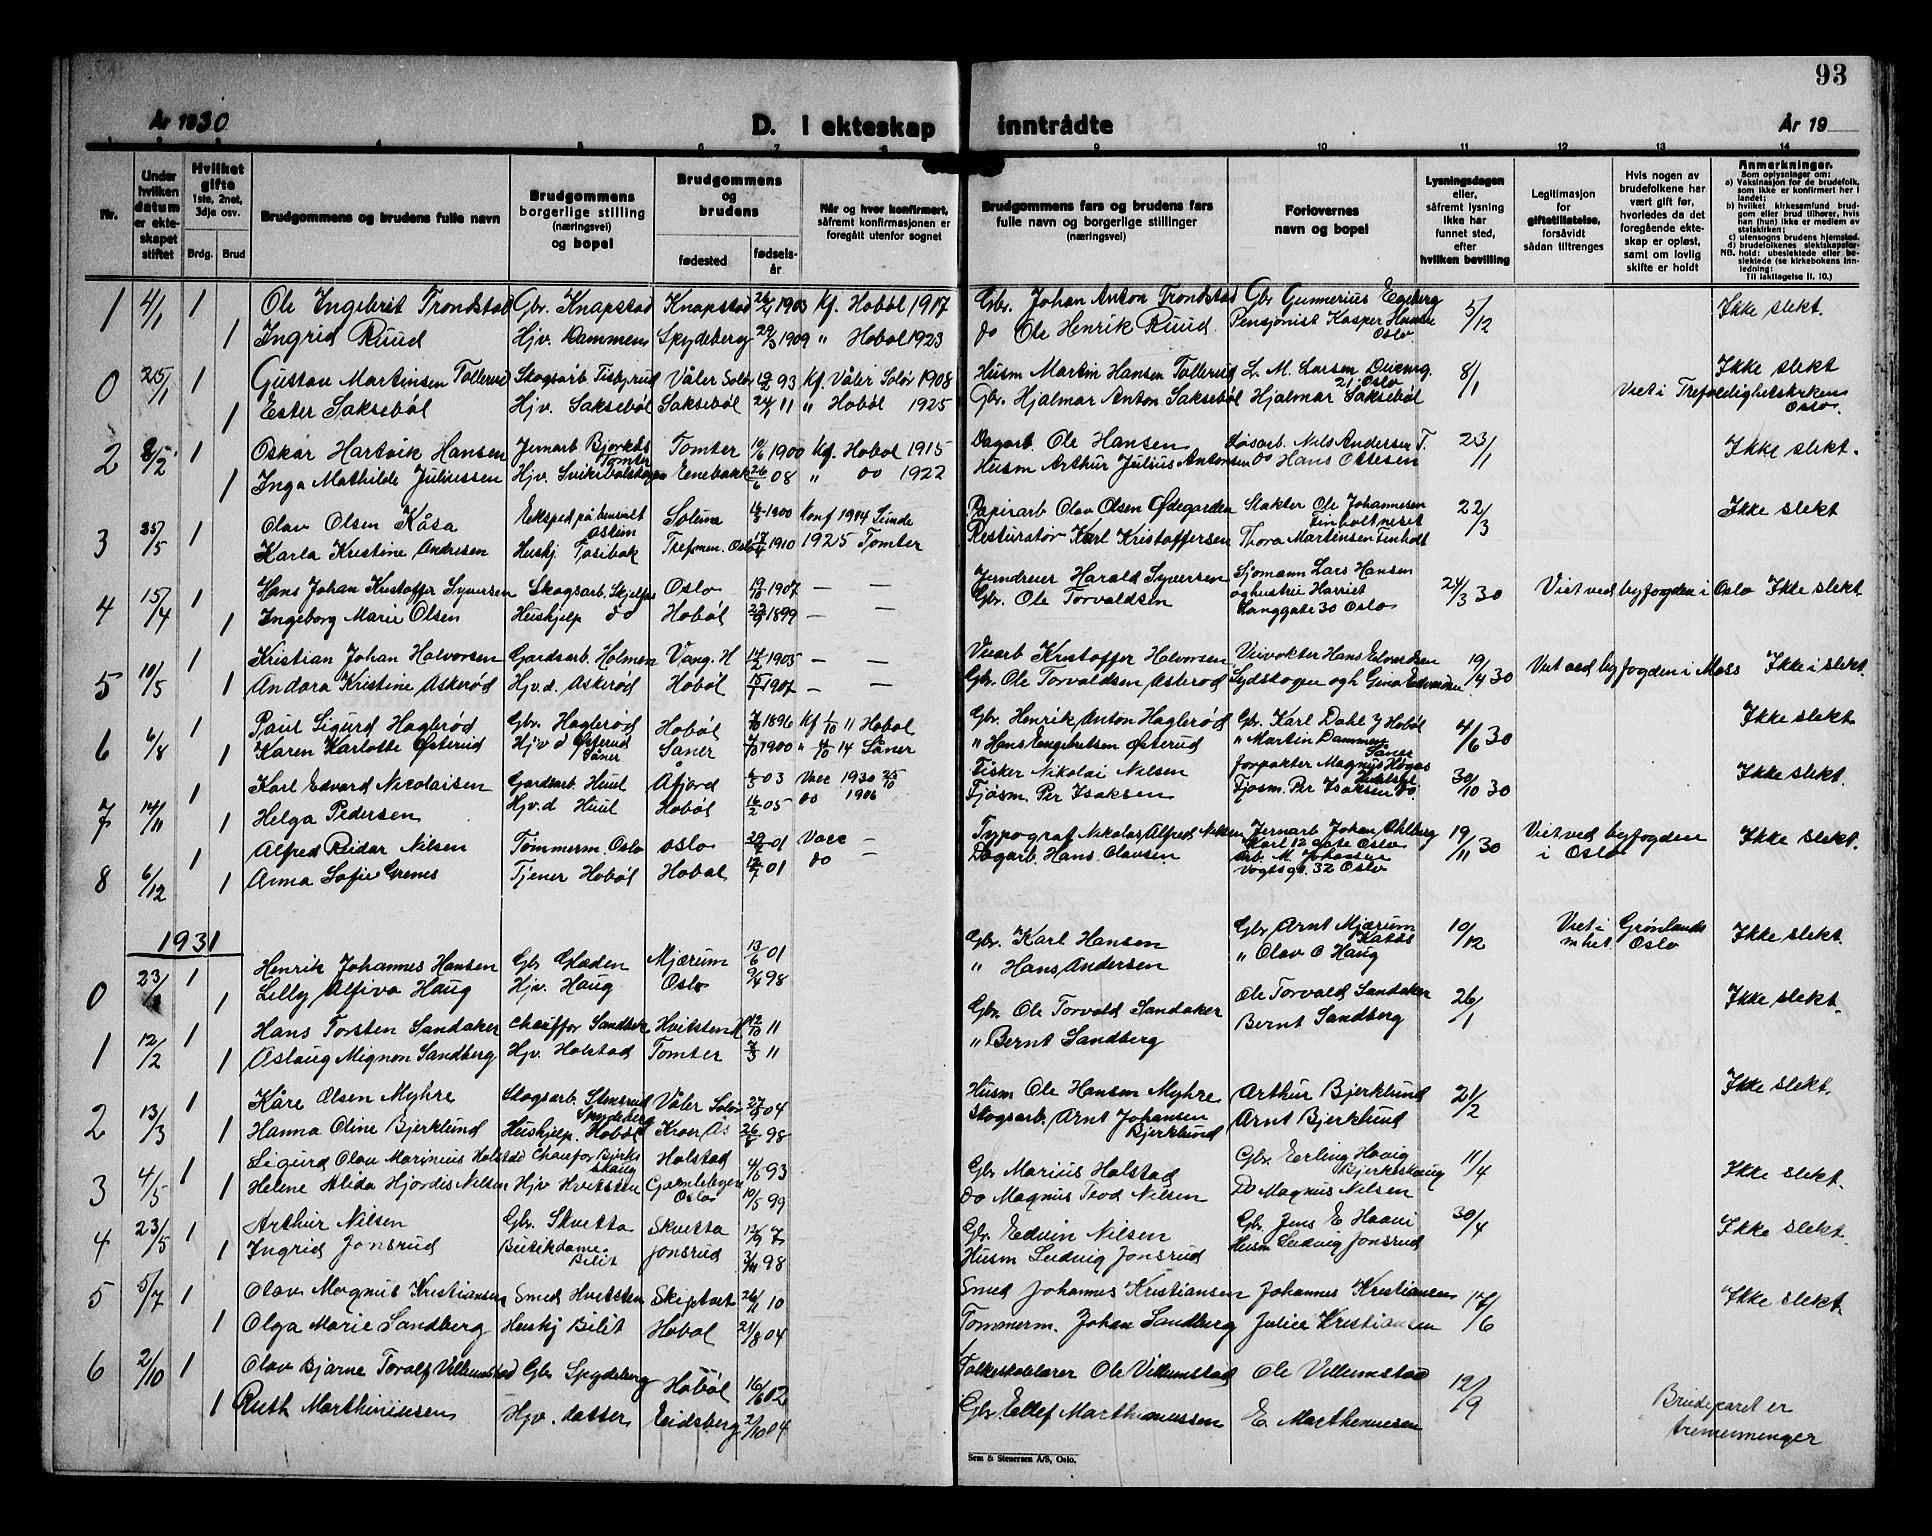 93
År 1930 D. I ekteskap inntrådte År 19
1 2 3 4 5 6 7 8 9 10 11 12 13 14
Nr. Under hvilken datum er ekteskapet stiftet Hvilket gifte 1ste, 2net, 3dje osv. Brdg. Brud Brudgommens og brudens fulle navn Brudgommens borgerlige stilling (næringsvei) og bopel Brudgommens og brudens fødested fødselsår Når og hvor konfirmert, såfremt konfirmasjonen er foregått utenfor sognet Brudgommens fars og brudens fars fulle navn og borgerlige stillinger (næringsvei) Forlovernes navn og bopel Lysningsdagen eller, såfremt lysning ikke har funnet sted, efter hvilken bevilling Legitimasjon for giftetillatelse, forsåvidt sådan tiltrenges Hvis nogen av brudefolkene har vært gift før, hvorledes da det foregående ekteskap er opløst, samt om lovlig skifte er holdt Anmerkninger. Som oplysninger om: a) Vaksinasjon for de brudefolk, som ikke er konfirmert her i landet; b) hvilket kirkesamfund brudgom eller brud tilhører, hvis han (hun) ikke er medlem av statskirken; c) utensogns brudens hjemsted. d) brudefolkenes slektskapsforhold: ubeslektede eller beslektede (se kirkebokens innledning: NB. Til iakttagelse II. 10.)
1 4/1 1 Ole Ingebret Trondstad Gbr. Knapstad Knapstad 26/4 1903 Kf. Hobøl 1917 Gbr. Johan Anton Trondstad Gbr Gunnerius Egeberg 5/12 Ikke slekt.
1 Ingrid Ruud Hjv. Dammen Spydeberg 29/3 1909 " Hobøl 1923 do Ole Henrik Ruud Pensjonist Kasper Hansen Oslo
0 25/1 1 Gustav Martinsen Tollerud Skogsarb. Våler Solør 19/2 93 Kf. Våler Solør 1908 Husm Martin Hansen Tollerud L. M. Larsen 21 Oslo 8/1 Ikke slekt
1 Ester Saksebøl Hjv. Saksebøl Saksebøl 24/1 11 " Hobøl 1925 Gbr. Hjalmar Anton Saksebøl Hjalmar Saksebøl Viet i Trefoldighetskirken Oslo.
2 8/2 1 Oskar Hartvik Hansen Jernarb Tomter Tomter 10/6 1900 Kf. Hobøl 1915 Dagarb. Ole Hansen Løsarb. Nils Andersen T. 23/1 Ikke slekt.
1 Inga Mathilde Juliussen Hjv. Enebakk 26/6 08 " do 1922 Husm Arthur Julius Antonsen do Hans Ottesen
3 25/5 1 Olav Olsen Kåsa Solum 16/3 1900 Konf 1914 Papirarb Olav Olsen Ødegarden Slakter Ole Johannesen Finholtneset 22/3 Ikke slekt
Karla Kristine Andresen Hushj Tasibak Trefmen. Oslo 17/4 1910 1925 Tomter Resturatør Karl Kristoffersen Thora Martinsen Finholt
4 15/4 1 Hans Johan Kristoffer Syversen Skogsarb. Oslo 19/10 1907 — — Jerndreier Harald Syversen Sjømann Lars Hansen 24/3 30 Viet ved byfogden i Oslo Ikke slekt
1 Ingeborg Marie Olsen Hushjelp do Hobøl 1899 Gbr. Ole Torvaldsen og hustru Harriet Langgate 30 Oslo
5 10/5 1 Kristian Johan Halvorsen Gardsarb. Holmen Vang. H 14/2 1905 — — Veiarb Kristoffer Halvorsen Veivokter Hans Edvardsen 19/4 30 Viet ved byfogden i Moss Ikke i slekt.
1 Andora Kristine Askerød Hjv.d. Askerød Hobøl 1907 — — Gbr. Ole Torvaldsen Askerød Sydskogen og h Gina Edvardsen
6 6/8 1 Paul Sigurd Haglerød Gbr. Haglerød Hobøl 1896 Kf 1/10 11 Hobøl Gbr. Henrik Anton Haglerød Gbr. Karl Dahl Y Hobøl 4/6 30 Ikke slekt
1 Karen Karlotte Østerud Hjv d Østerud Såner Såner 1900 " 4/10 14 Såner " Hans Engebretsen Østerud " Martin Dammen Såner
7 14/11 1 Karl Edvard Nicolaisen Gardsarb. Huul Åfjord 03 Vacc 1930 25/10 Fisker Nikolai Nilsen Forpakter Magnus 30/10 30 Ikke slekt.
1 Helga Pedersen Hjv.d Huul Hobøl 16/2 05 do 1906 Fjøsm. Per Isaksen Fjøsm. Per Isaksen do.
8 6/12 1 Alfred Reidar Nilsen Tømmerm. Oslo Oslo 01 Vacc — Typograf Nikolas Alfred Nilsen Jernarb Johan Ohlberg Karl 12 gate Oslo 19/11 30 Viet ved byfogden i Oslo Ikke slekt.
1 Anna Sofie Grenes Tjener Hobøl Hobøl 01 do — Dagarb. Hans Olavsen Arb. M. Johansen Vogtsgt. 32 Oslo
1931
0 23/ 1 Henrik Johannes Hansen Gbr Glæden Mjærum 13/6 01 Gbr. Karl Hansen Gbr Arnt Mjærum 10/12 Viet i Grønlands mhet. Oslo Ikke slekt.
1 Lilly Alfiva Haug Hjv. Haug Oslo 98 " Hans Andersen " Olav O Haug
1 12/2 1 Hans Torsten Sandaker Chauffør Sandbek Hvitsten 12/10 11 Gbr. Ole Torvald Sandaker Ole Torvald Sandaker 26/1 Ikke slekt.
1 Aslaug Mignon Sandberg Hjv. Holstad Tomter 11 " Bernt Sandberg Bernt Sandberg
2 13/3 1 Kåre Olsen Myhre Skogsarb. Stensrud Spydeberg Våler Solør 27/3 04 Husm Ole Hansen Myhre Arthur Bjerklund 21/2 Ikke slekt.
1 Hanna Oline Bjerklund Hushjelp. Hobøl Kroer Ås 26/8 98 Skogsarb. Arnt Johansen Bjerklund Arnt Bjerklund
3 4/5 1 Sigurd Olav Marinius Holstad Chauffør Bjerkeskaug Holstad 93 Gbr Marius Holstad Gbr. Erling Høvig Bjerkeskaug 11/4 Ikke slekt.
1 Helene Alida Hjordis Nilsen Hjv Hvitsten Gamlebyen Oslo 10/5 99 do Magnus Teod Nilsen Do Magnus Nilsen
4 23/5 1 Arthur Nilsen Gbr. Skvetta Skvetta 12/9 7 Gbr. Edvin Nilsen Gbr. Jens E Haavi 30/4 Ikke slekt.
1 Ingrid Jonsrud Butikdame. Bilit Jonsrud 98 Husm Ludvig Jonsrud Husm Ludvig Jonsrud
5 5/7 1 Olav Magnus Kristiansen Smed Hvitsten Skiptvet 26/11 10 Smed Johannes Kristiansen Johannes Kristiansen 17/6 Ikke slekt.
1 Olga Marie Sandberg Hushj Bilit Hobøl 21/8 04 Tømmerm. Johan Sandberg Julie Kristiansen
6 2/10 1 Olav Bjarne Toralf Villemstad Gbr Spydeberg Hobøl 16/6 02 Folkeskolelærer Ole Villemstad Ole Villemstad 12/9
1 Ruth Marthiniussen Hjv. datter Eidsberg 2/10 04 Gbr. Ellef Marthinussen E Marthinussen Brudeparet er tremenninger
Sem & Stenersen A/S, Oslo.